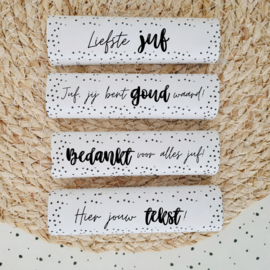 Liefste juf
Juf, jij bent goud waard!
Bedankt voor alles juf!
Hier jouw tekst!